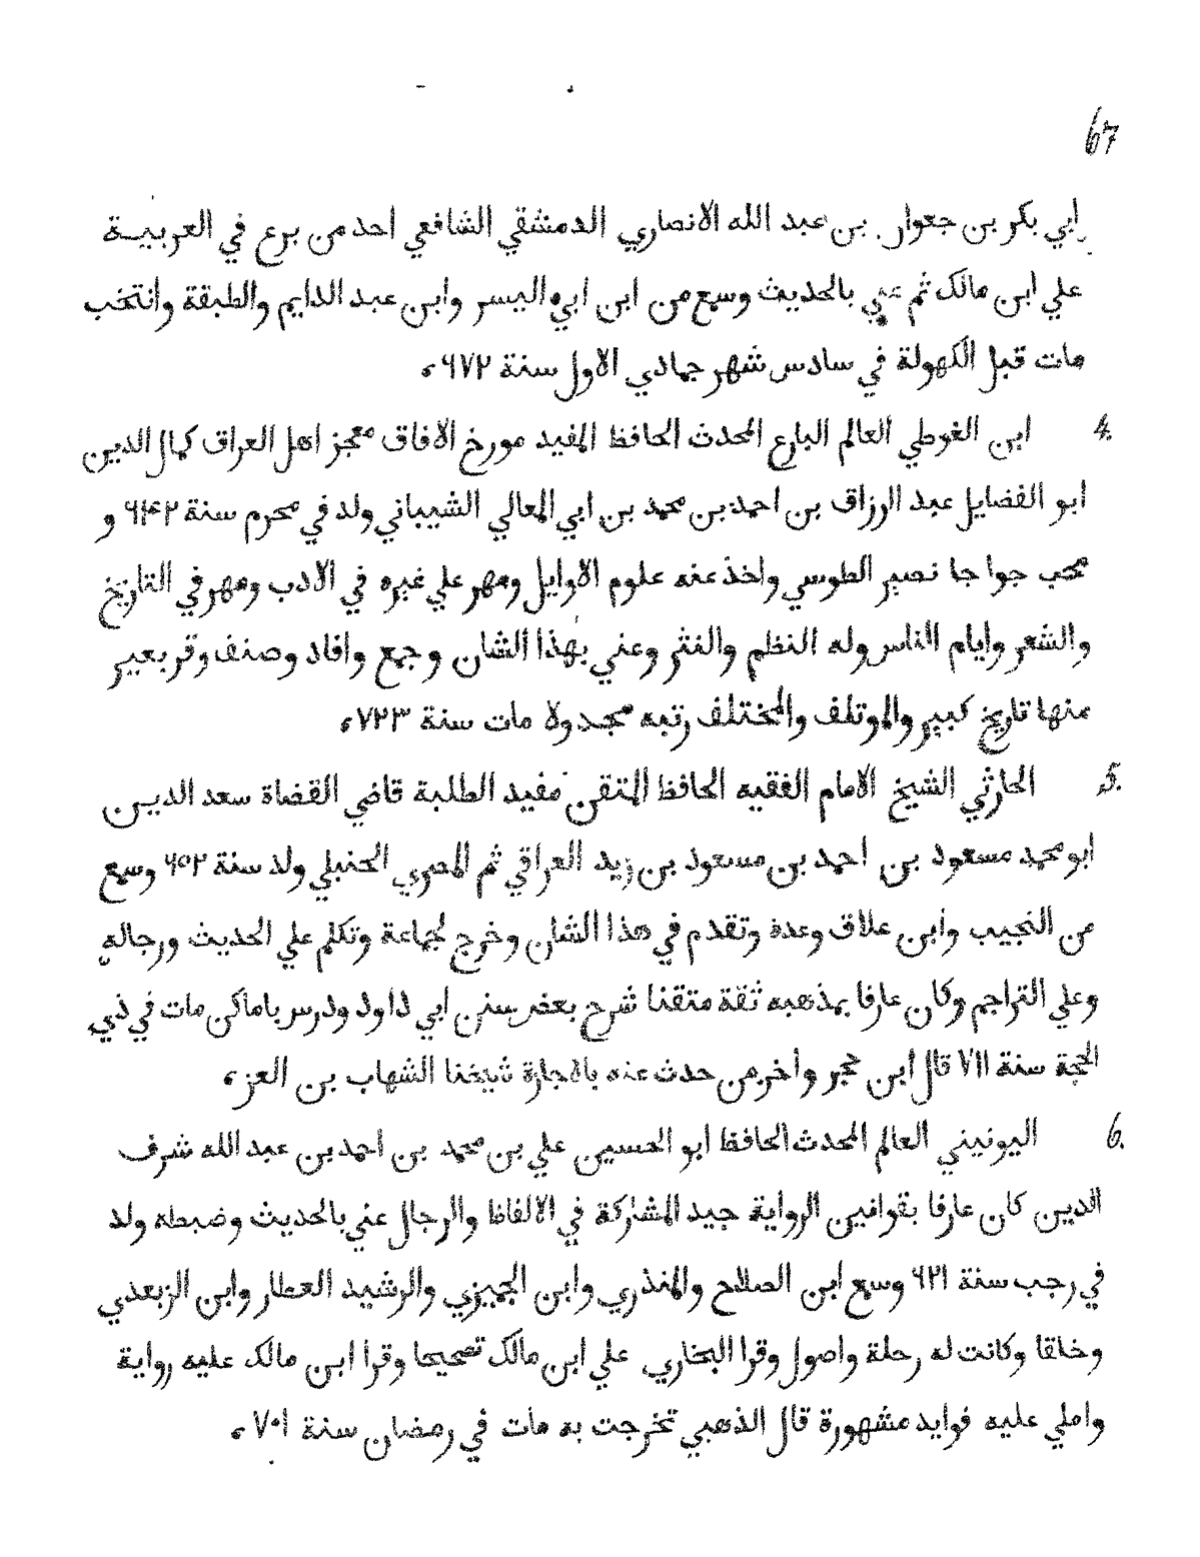 67
ابي بكر بن جعوان بن عبد الله الانصاري الدمشقي الشافعي احد من برع في العربيـة
علي ابن مالك ثم عني بالحديث وسمع من ابن ابي اليسر وابن عبد الدايم والطبقة وانتخب
مات قبل الكهولة في سادس شهر جمادي الاول سنة ٦٧٢ ه
4. ابن الغوطي العالم البارع المحدث الحافظ المفيد مورخ الافاق معجز اهل العراق كمال الدين
ابو الفضايل عبد الرزاق بن احمد بن محمد بن ابي المعالي الشيباني ولد في محرم سنة ٦٤٢ و
صحب جواجا نصير الطوسي واخذ عنه علوم الاوايل ومهر علي غيره في الادب ومهر في التاريخ
والشعر وايام الناس وله النظم والنثر وعني بهذا الشان وجمع وافاد وصنف وقر بعير
منها تاريخ كبير والموتلف والمختلف رتبه مجدولا مات سنة ٧٢٣ ه
5. الحارثي الشيخ الامام الفقيه الحافظ المتقن مفيد الطلبة قاضي القضاة سعد الديـن
ابو محمد مسعود بن احمد بن مسعود بن زيد العراقي ثم المصري الحنبلي ولد سنة ٦٥٢ وسمع
من النجيب وابن علاق وعدة وتقدم في هذا الشان وخرج لجماعة وتكلم علي الحديث ورجاله
وعلي التراجم وكان عارفا بمذهبه ثقة متقنا شرح بعض سنن ابي داود ودرس باماكن مات في ذي
الحجة سنة ٧١١ قال ابن حجر واخر من حدث عنه بالاجازة شيخنا الشهاب بن العز ه
6. اليونيني العالم المحدث الحافظ ابو الحسين علي بن محمد بن احمد بن عبد الله شرف
الدين كان عارفا بقوانين الرواية جيد المشاركة في الالفاظ والرجال عني بالحديث وضبطه ولد
في رجب سنة ٦٢١ وسمع ابن الصلاح والمنذري وابن الجميزي والرشيد العطار وابن الزبعدي
وخلقا وكانت له رحلة واصول وقرا البخاري علي ابن مالك تصحيحا وقرا ابن مالك عليه رواية
واملي عليه فوايد مشهورة قال الذهبي تخرجت به مات في رمضان سنة ٧٠١ ه